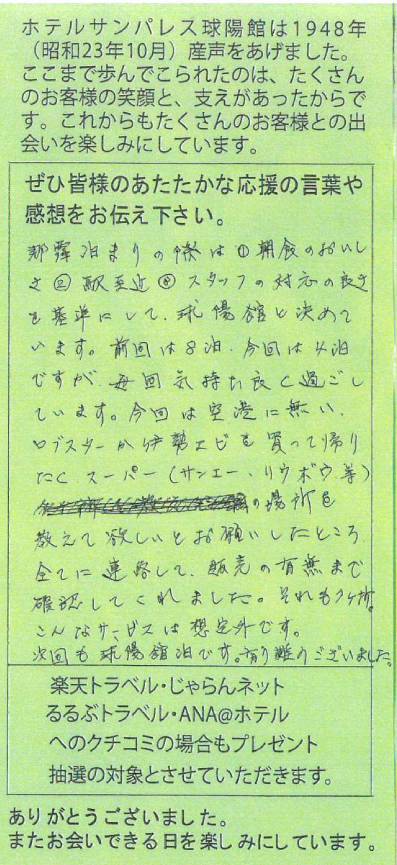 ホテルサンパレス球陽館は1948年
（昭和23年10月）産声をあげました。
ここまで歩んでこられたのは、たくさん
のお客様の笑顔と、支えがあったからで
す。これからもたくさんのお客様との出
会いを楽しみにしています。
ぜひ皆様のあたたかな応援の言葉や
感想をお伝え下さい。
那覇泊まりの際は①朝食のおいし
さ②駅至近③スタッフの対応の良さ
を基準にして、球陽館と決めて
います。前回は8泊、今回は4泊
ですが、毎回気持ち良く過ごし
ています。今回は空港に無い、
ロブスターか伊勢エビを買って帰り
たく スーパー（サンエー、リウボウ等）
の場所を
教えて欲しいとお願いしたところ
全てに連絡して、販売の有無まで
確認してくれました。それも7ヶ所。
こんなサービスは想定外です。
次回も球陽館泊です。有り難うございました。
楽天トラベル・じゃらんネット
るるぶトラベル・ANA@ホテル
へのクチコミの場合もプレゼント
抽選の対象とさせていただきます。
ありがとうございました。
またお会いできる日を楽しみにしています。